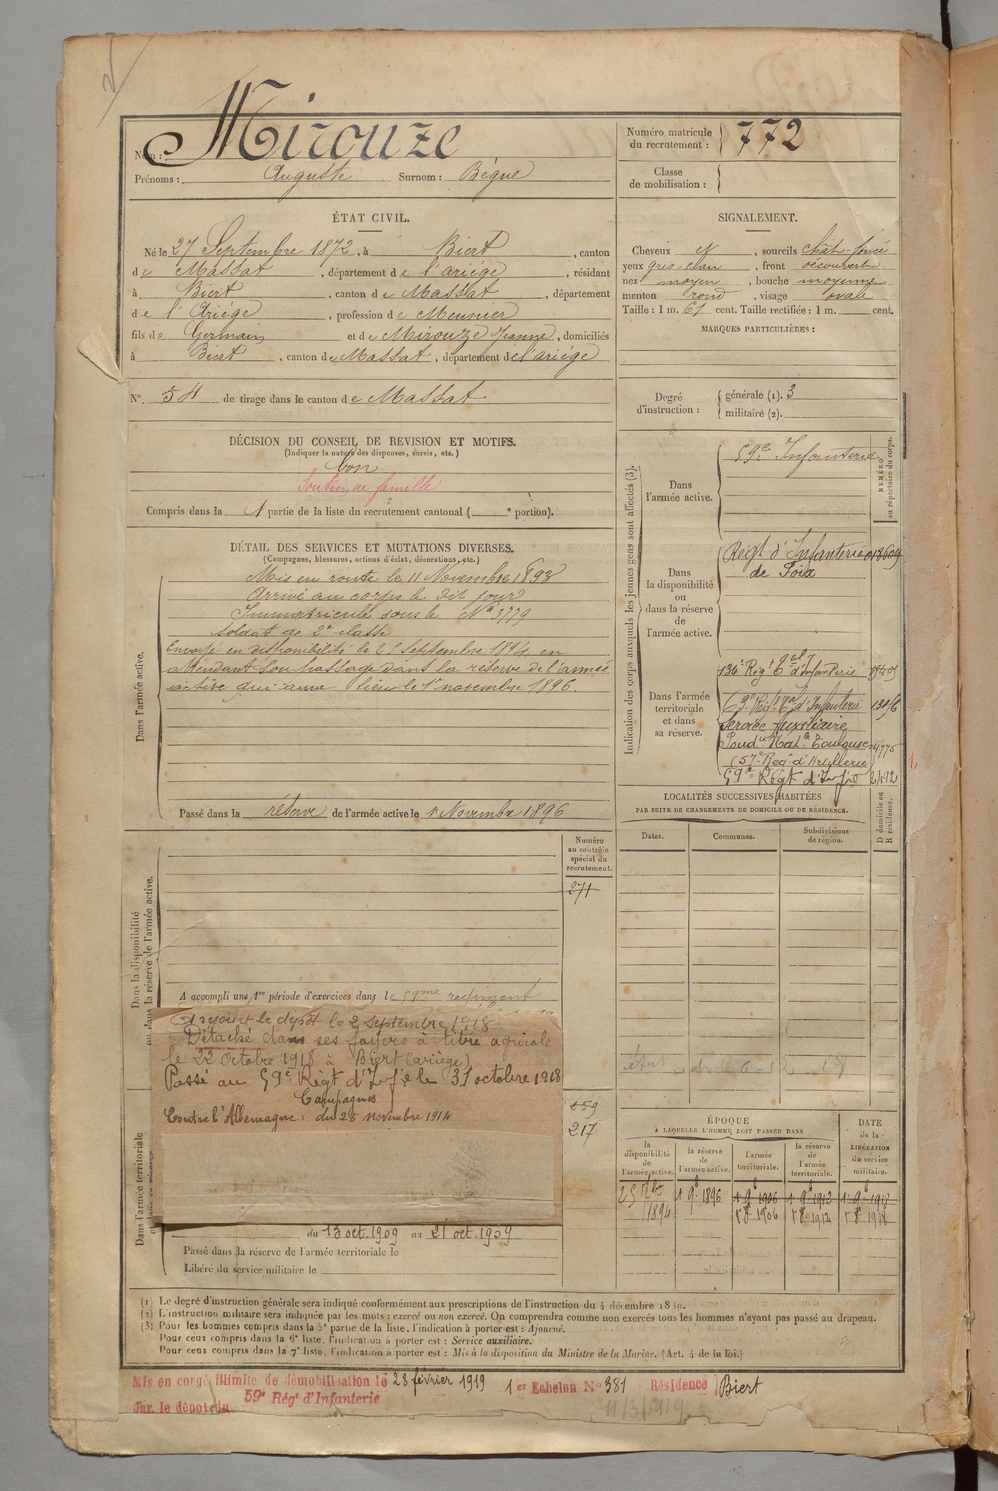 Nom : Mirouze
Prénoms : Auguste Surnom : Bégué
Numéro matricule du recrutement : 772
Classe de mobilisation :
ÉTAT CIVIL.
Né le 27 Septembre 1872, à Biert, canton
de Massat, département de l'ariége, résidant
à Biert, canton de Massat, département
de l'Ariége, profession de Meunier
fils de Germain et de Mirouze Jeanne, domiciliés
à Biert, canton de Massat, département de l'ariége
N° 54 de tirage dans le canton de Massat
SIGNALEMENT.
Cheveux N, sourcils chât-foncé
yeux gris-clair, front découvert
nez moyen, bouche moyenne
menton rond, visage ovale
Taille : 1 m. 61 cent. Taille rectifiée : 1 m. cent.
MARQUES PARTICULIÈRES :
Degré d'instruction : générale (1). 3
militaire (2).
DÉCISION DU CONSEIL DE REVISION ET MOTIFS.
(Indiquer la nature des dispenses, sursis, etc.)
bon
Soutien de famille
Compris dans la 1 partie de la liste du recrutement cantonal ( e portion).
DÉTAIL DES SERVICES ET MUTATIONS DIVERSES.
(Campagnes, blessures, actions d'éclat, décorations, etc.)
Dans l'armée active.
Mis en route le 11 Novembre 1893
Arrivé au corps le Dit jour
Immatriculé sous le N° 3779
Soldat de 2e classe
Envoyé en disponibilité le 25 Septembre 1894 en
attendant son passage dans la réserve de l'armée
active qui aura lieu le 1er novembre 1896.
Passé dans la réserve de l'armée active le 1 Novembre 1896
Indication des corps auxquels les jeunes gens sont affectés (3).
NUMÉRO au répertoire du corps.
Dans l'armée active.
59e Infanterie
Dans la disponibilité ou dans la réserve de l'armée active.
Régt. d'Infanterie 018609
de Foix
Dans l'armée territoriale et dans sa réserve.
134e Régt Tal d'Infanterie
Service Auxiliaire
57e Rég d'Artillerie
59e Régt d'Infie
LOCALITÉS SUCCESSIVES HABITÉES
PAR SUITE DE CHANGEMENTS DE DOMICILE OU DE RÉSIDENCE.
D domicile ou R résidence.
Dates. Communes. Subdivisions de région.
Numéro au contrôle spécial du recrutement.
271
Dans la disponibilité ou dans la réserve de l'armée active.
A accompli une 1re période d'exercices dans le 59me régiment
A rejoint le dépôt le 2 septembre 1918
Détaché dans ses foyers à titre agricole
le 22 Octobre 1918 à Biert (ariége)
Passé au 59e Régt d'Infie le 31 octobre 1918
Campagnes
Contre l'Allemagne : du 28 novembre 1914
259
217
Dans l'armée territoriale
du 13 oct. 1909 au 21 oct. 1909
Passé dans la réserve de l'armée territoriale le
Libéré du service militaire le
ÉPOQUE
À LAQUELLE L'HOMME DOIT PASSER DANS
DATE de la LIBÉRATION du service militaire.
la disponibilité de l'armée active. la réserve de l'armée active. l'armée territoriale. la réserve de l'armée territoriale.
25 7bre 1894 1 9b 1896 1 9b 1906 1 9b 1912 1 9b 1918
(1) Le degré d'instruction générale sera indiqué conformément aux prescriptions de l'instruction du 4 décembre 1889.
(2) L'instruction militaire sera indiquée par les mots : exercé ou non exercé. On comprendra comme non exercés tous les hommes n'ayant pas passé au drapeau.
(3) Pour les hommes compris dans la 5e partie de la liste, l'indication à porter est : Ajourné.
Pour ceux compris dans la 6e liste, l'indication à porter est : Service auxiliaire.
Pour ceux compris dans la 7e liste, l'indication à porter est : Mis à la disposition du Ministre de la Marine. (Art. 4 de la loi.)
Mis en congé illimité de démobilisation le 28 février 1919 1er Echelon N° 381 Résidence Biert
Par le dépôt du 59e Régt d'Infanterie
11/3/1919